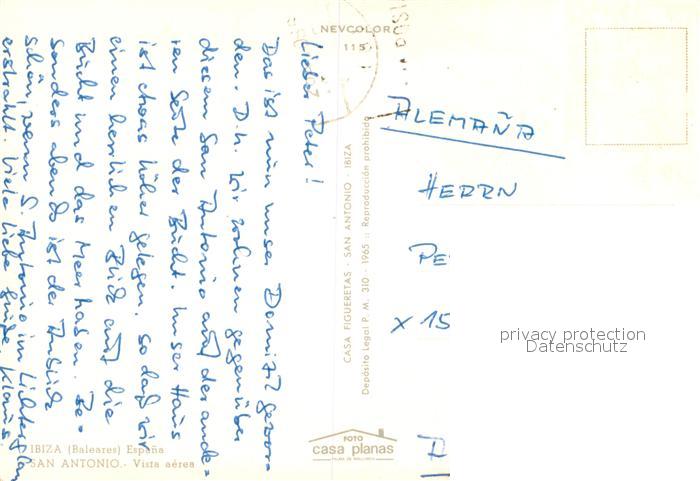 Lieber Peter!
Das ist nun unser Domizil gewor-
den. D.h. wir wohnen gegenüber
diesem San Antonio auf der ande-
ren Seite der Bucht. Unser Haus
ist etwas höher gelegen, so daß wir
einen herrlichen Blick auf die
Bucht und das Meer haben. Be-
sonders abends ist der Anblick
schön, wenn S. Antonio im Lichterglanz
erstrahlt. Viele liebe Grüße, Klaus
NEVCOLOR
115
CASA FIGUERETAS - SAN ANTONIO - IBIZA
Depósito Legal P. M. 310 - 1965 :: Reproducción prohibida
ALEMAÑA
HERRN
PE
X 15
D
privacy protection
Datenschutz
IBIZA (Baleares) España
SAN ANTONIO.- Vista aérea
FOTO
casa planas
PALMA DE MALLORCA